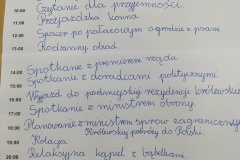 10:00 Czytanie dla przyjemności
Przejażdżka konna
12:00 Spacer po pałacowym ogrodzie z psami
13:00 Rodzinny obiad
14:00 Spotkanie z premierem rządu
Spotkanie z doradcami politycznymi
Wyjazd do podmiejskiej rezydencji królewskiej
Spotkanie z ministrem obrony
18:00 Planowanie z ministrem spraw zagranicznych
Królewskiej podróży do Polski
Kolacja
20:00 Relaksacyjna kąpiel z bąbelkami